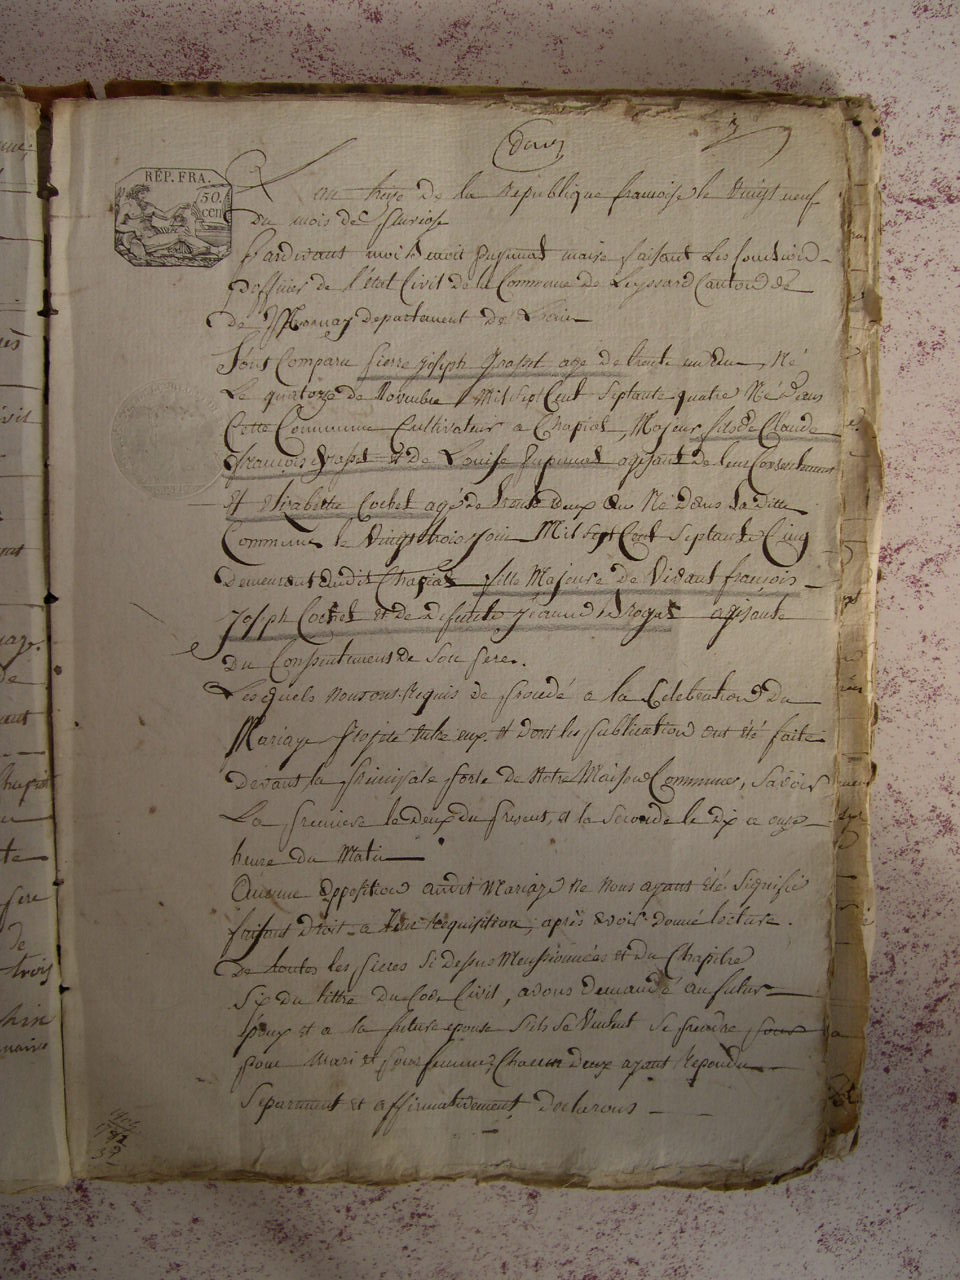 3
RÉP. FRA.
50.
cen
an treze de la Republique francoise le Vingt neuf
Du mois de floriose
Pardevant moi Benoit Pugimat maire faisant Les fonctions
D'officier de l'état Civil de la Commune de Leyssard Canton de
de département de Lain
Sont Comparu pierre joseph age de trente un an, Né
Le quatorze de Novembre Mil Sept Cent Septante quatre Né Dans
Cette Commune Cultivateur a Chapiat, Majeur fils de Claude
françois et de Louise agissant de leur Consentement
Et Elizabette Cochet agé de trente deux an Né Dans La ditte
Commune le Vingt trois join Mil Sept Cent Septante Cinq
Demeurant audit Chapiat fille Majeure de Vivant françois
Joseph Cochet et de Defunte jeanne agissante
Du Consentement de Son pere.
Les quels nous ont Requis de procedé a la Celebration Du
Mariage projeté entre eux. Et Dont les publication ont été faite
devant la principale porte de Notre Maison Commune, Savoir
La premiere le Deux du present, et la Seconde le Dix a onze
heure du Matin
Aucune opposition audit Mariage Ne nous ayant été Signifié
faisant Droit a leur Requisition, après avoir donné lecture
De toutes les pieces Si dessus Mentionnées et du Chapitre
Six du tittre Du Code Civil, avons demandé au futur
Epoux et a la future epouse S'ils Se Veulent Se prendre
pour Mari et pour femme, Chacun Deux ayant Repondu
Séparement et affirmativement Declarons